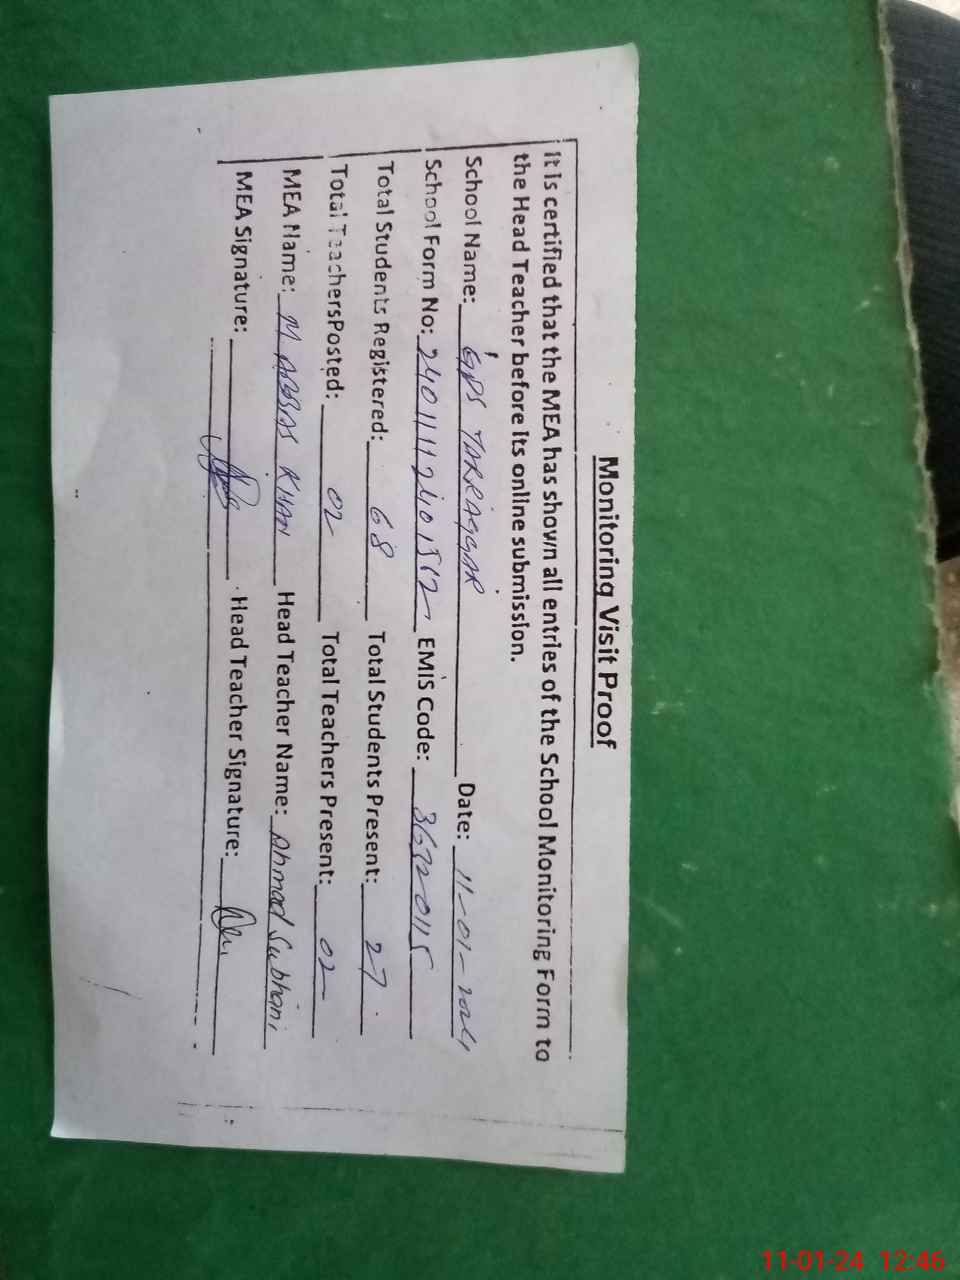 Monitoring Visit Proof
It is certified that the MEA has shown all entries of the School Monitoring Form to
the Head Teacher before its online submission.
School Name: GPS TARRAGGAR Date: 11-01-2024
School Form No: 2401112401512 EMIS Code: 36720115
Total Students Registered: 68 Total Students Present: 27
Total TeachersPosted: 02 Total Teachers Present: 02
MEA Name: M ABBAS KHAN Head Teacher Name: Ahmad Subhani
MEA Signature: Head Teacher Signature:
11-01-24 12:46